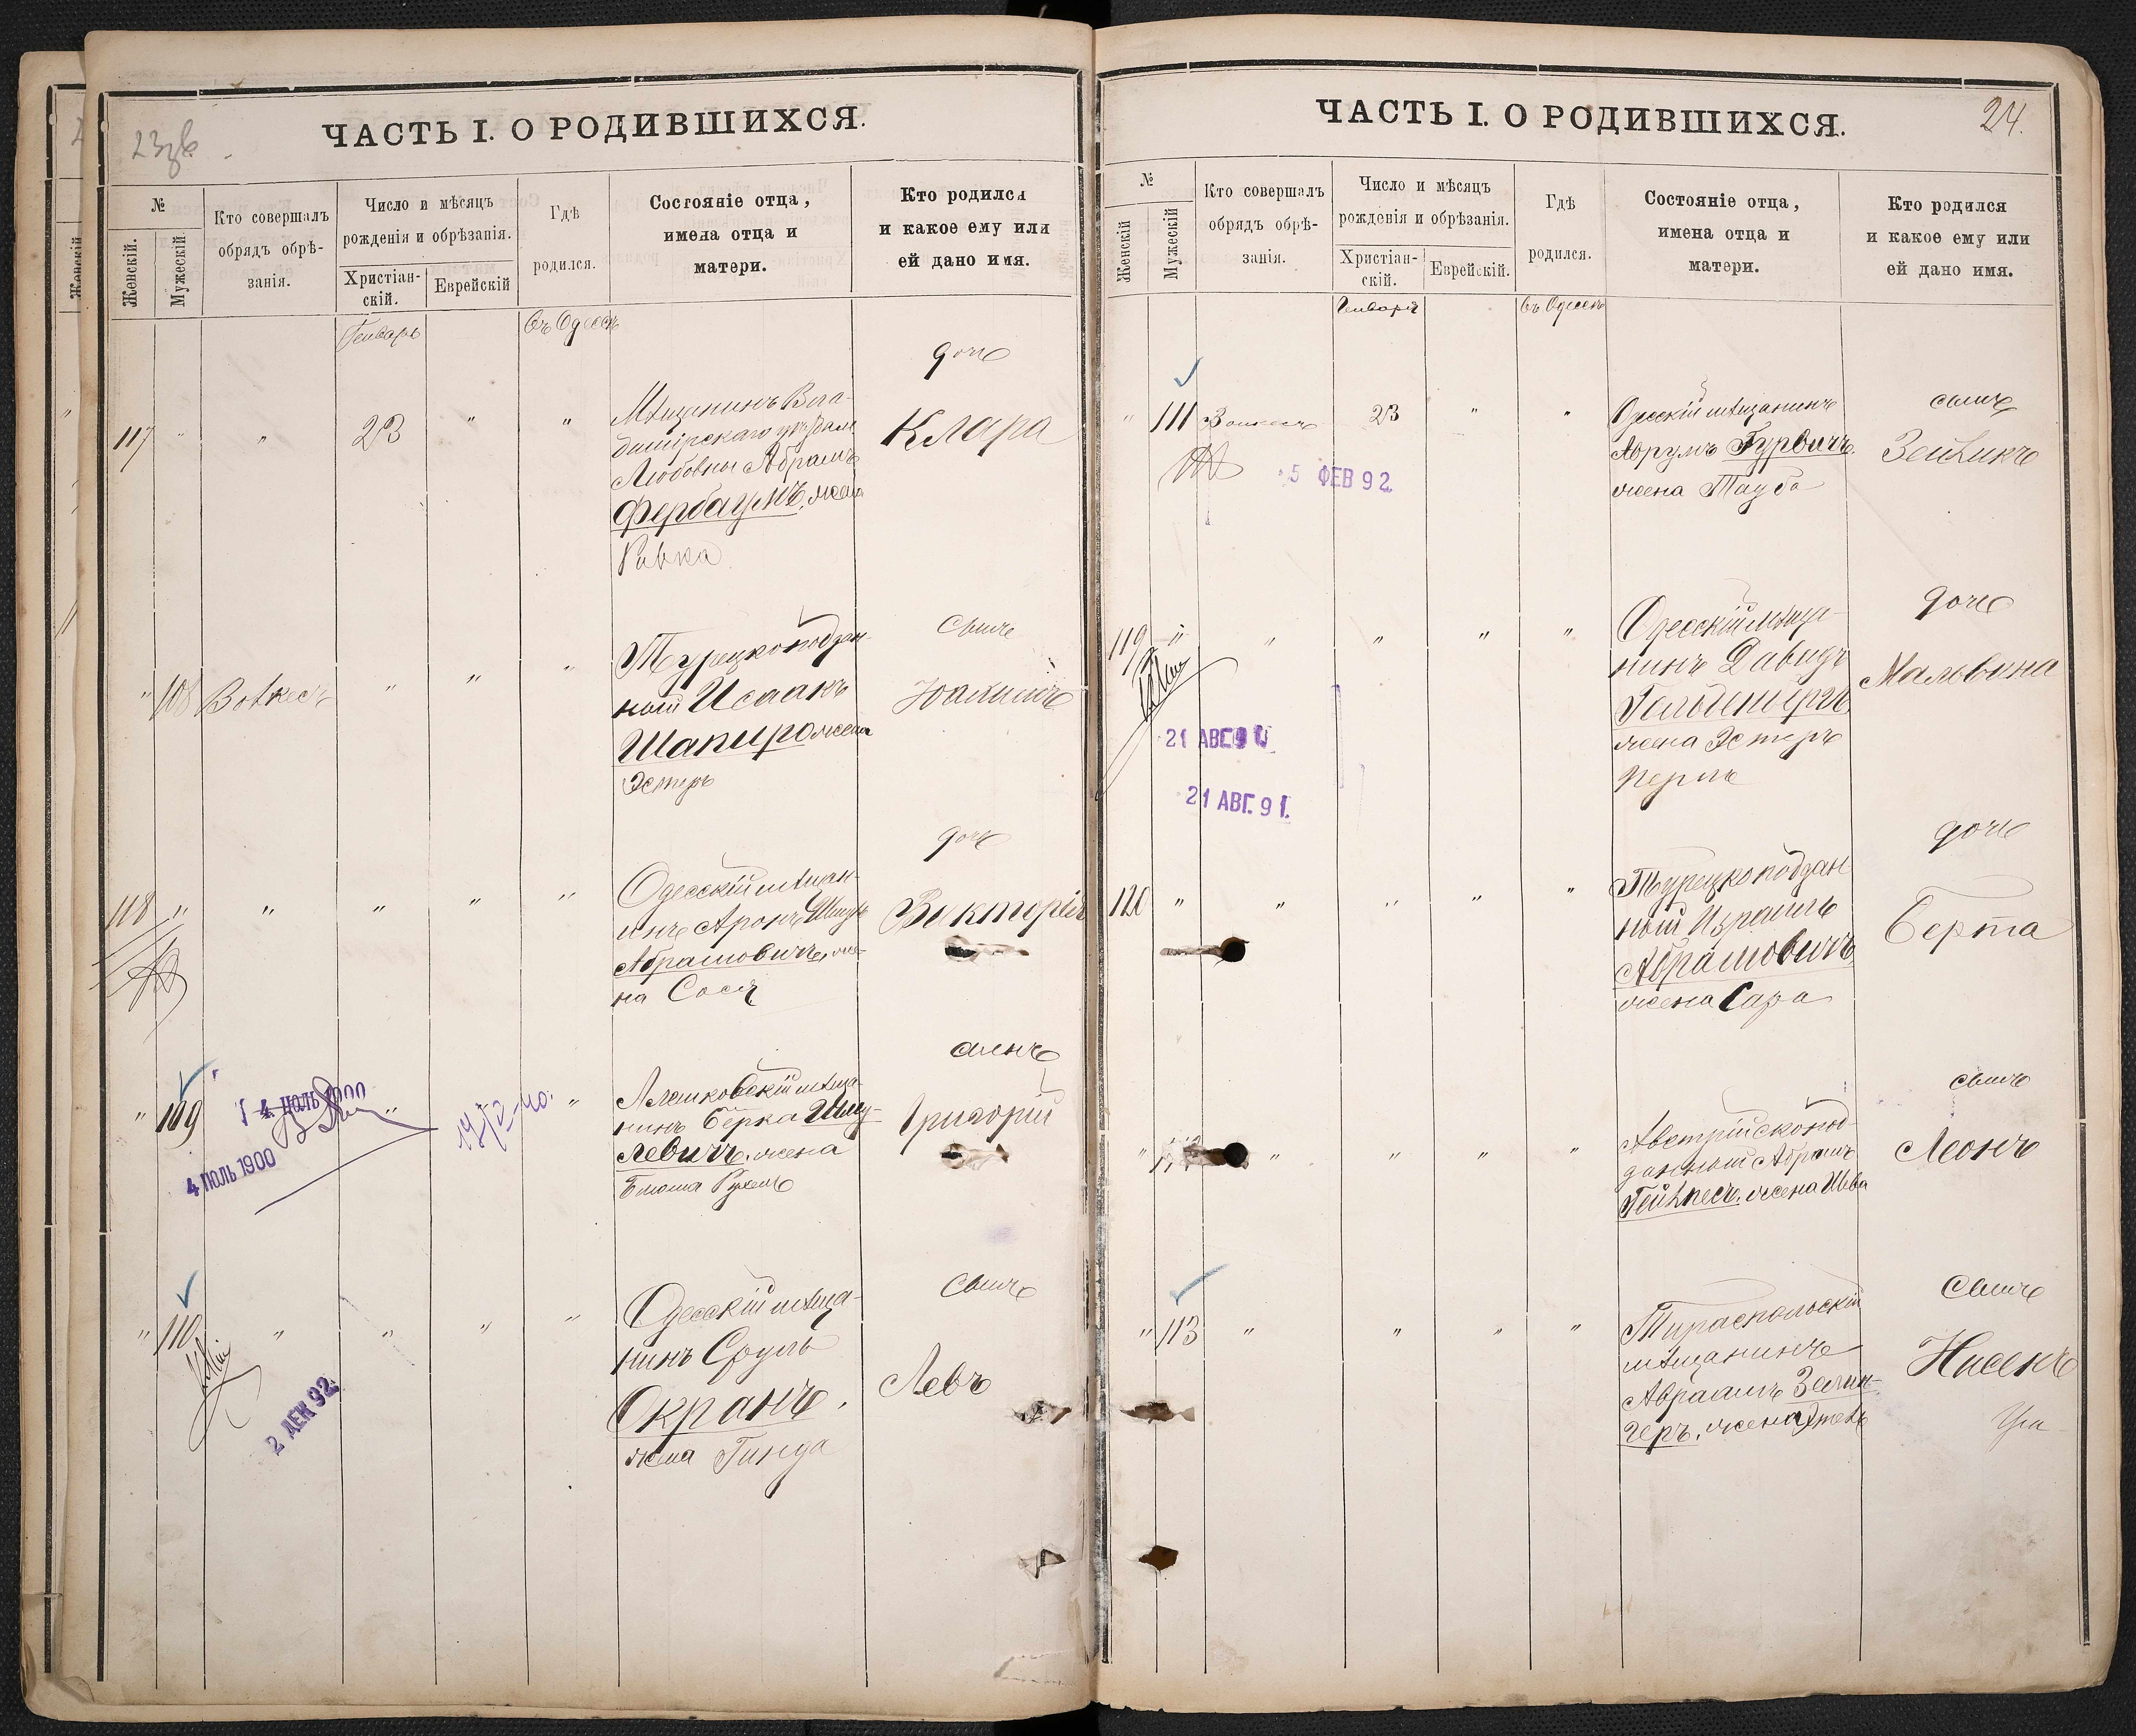 23 зв.
ЧАСТЬ I. О РОДИВШИХСЯ.
№
Женскій.
Мужескій
Кто совершалъ
обрядъ обрѣ-
занія.
Число и мѣсяцъ
рожденія и обрѣзанія.
Христіан-
скій.
Еврейскій
Гдѣ
родился.
Состояніе отца,
имена отца и
матери.
Кто родился
и какое ему или
ей дано имя.
Генварь
въ Одессѣ
117 " " 23 " "
Мѣщанинъ
Любовны Абрамъ
Фербаумъ, жена
Ривка
дочь
Клара
" 108 " " "
Турецкоподдан-
ный Исаакъ
Шапиро жена
Эстеръ
сынъ
Іоахимъ
118 " " " " "
Одесскій мѣщан-
инъ Аронъ
Абрамовичъ, же-
на Сося
дочь
Викторія
" 109 " "
4 ІЮЛЬ 1900
4 ІЮЛЬ 1900
Алешковскій мѣща-
нинъ Берка Шму-
левичъ, жена
Рухель
сынъ
Григорій
" 110 " " " "
2 ДЕК 92
Одесскій мѣща-
нинъ Сруль
Окранъ,
жена Гинда
сынъ
Левъ
24.
ЧАСТЬ I. О РОДИВШИХСЯ.
№
Женскій
Мужескій
Кто совершалъ
обрядъ обрѣ-
занія.
Число и мѣсяцъ
рожденія и обрѣзанія.
Христіан-
скій.
Еврейскій.
Гдѣ
родился.
Состояніе отца,
имена отца и
матери.
Кто родился
и какое ему или
ей дано имя.
Генварь
въ Одессѣ
" 111 23 " "
5 ФЕВ 92
Одесскій мѣщанинъ
Аврумъ Гурвичъ,
жена Тауба
сынъ
Зейликъ
119 " " " " "
21 АВГ.
21 АВГ. 91.
Одесскій мѣща-
нинъ Давидъ
Гольденбергъ,
жена Эстеръ
Перль
дочь
Мальвина
120 " " " " "
Турецкоподдан
ный Израиль
Абрамовичъ
жена Сара
дочь
Берта
" " " " "
Австрійскопод-
данный Абрамъ
жена Шева
сынъ
Леонъ
" 113 " " " "
Тираспольскій
мѣщанинъ
Авраамъ Залин-
геръ, жена
сынъ
Нисенъ